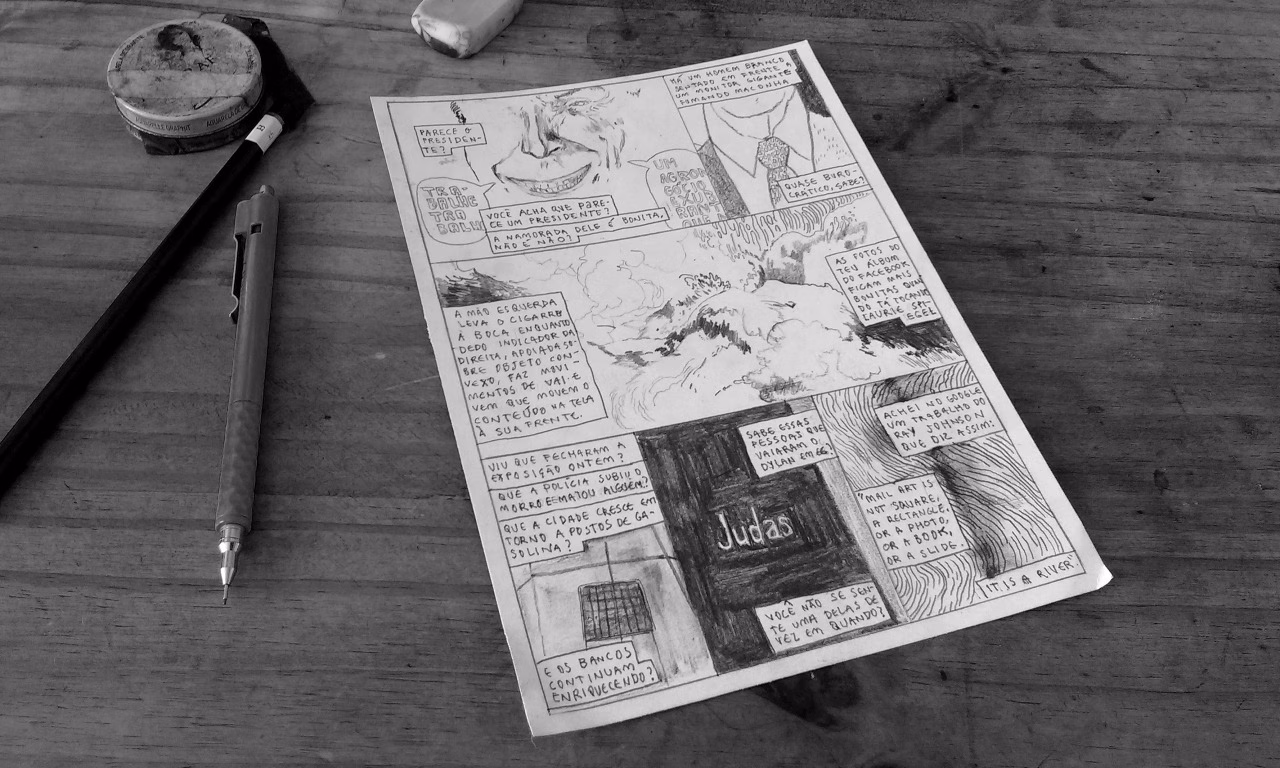 PARECE O
PRESIDEN-
TE?
TRA-
BALHE
TRA
VOCÊ ACHA QUE PARE-
CE UM PRESIDENTE?
A NAMORADA DELE É BONITA,
NÃO É NÃO?
UM
HÁ UM HOMEM BRANCO
SENTADO EM FRENTE A
UM MONITOR GIGANTE
FUMANDO MACONHA
QUASE BURO-
CRÁTICO, SABE?
A MÃO ESQUERDA
LEVA O CIGARRO
À BOCA ENQUANTO
DEDO INDICADOR DA
DIREITA, APOIADA SO-
BRE OBJETO CON-
VEXO, FAZ MOVI-
MENTOS DE VAI E
VEM QUE MOVEM O
CONTEÚDO NA TELA
À SUA FRENTE.
AS FOTOS DO
TEU ÁLBUM
DO FACEBOOK
FICAM MAIS
BONITAS QUAN
DO TÁ TOCANDO
LAURIE SPI-
EGEL
VIU QUE FECHARAM A
EXPOSIÇÃO ONTEM?
QUE A POLÍCIA SUBIU O
MORRO E MATOU ALGUÉM?
QUE A CIDADE CRESCE EM
TORNO A POSTOS DE GA-
SOLINA?
E OS BANCOS
CONTINUAM
ENRIQUECENDO?
SABE ESSAS
PESSOAS QUE
VAIARAM O
DYLAN EM 66?
Judas
VOCÊ NÃO SE SEN-
TE UMA DELAS DE
VEZ EM QUANDO?
ACHEI NO GOOGLE
UM TRABALHO DO
RAY JOHNSON
QUE DIZ ASSIM:
"MAIL ART IS
NOT SQUARE,
A RECTANGLE,
OR A PHOTO,
OR A BOOK,
OR A SLIDE.
IT IS A RIVER"